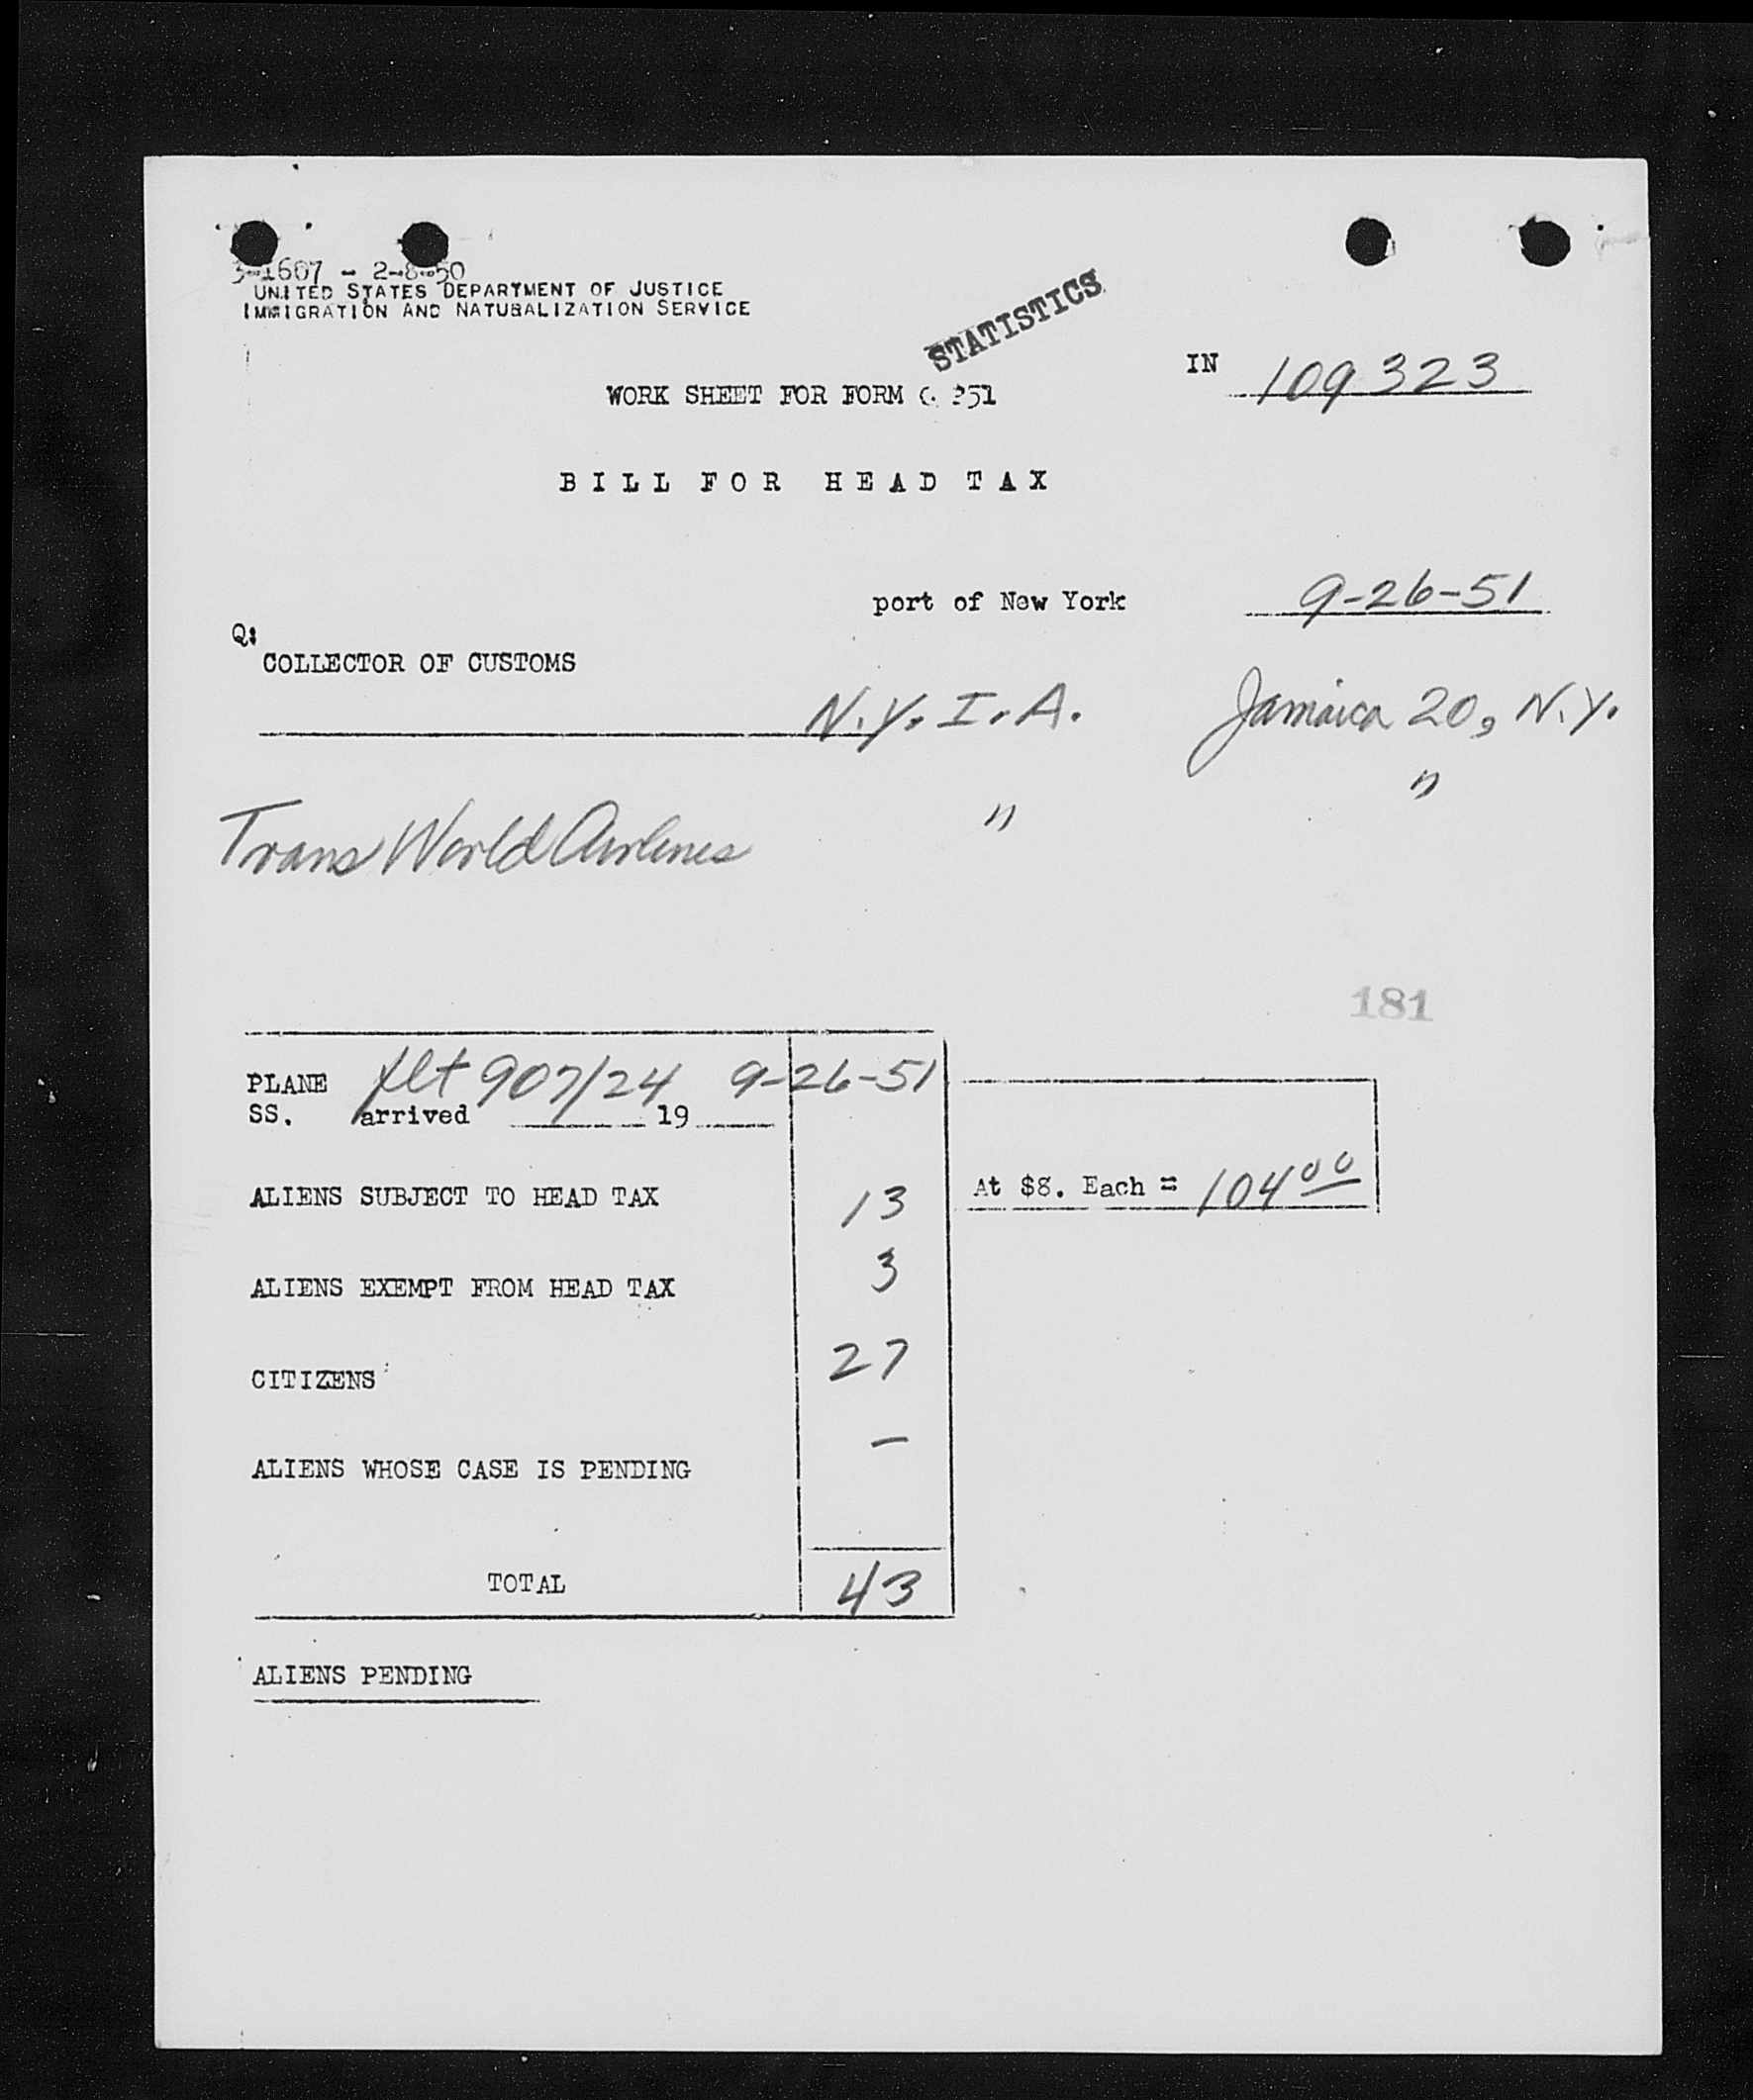 3-1607 - 2-8-50
UNITED STATES DEPARTMENT OF JUSTICE
IMMIGRATION AND NATURALIZATION SERVICE
STATISTICS
IN 109323
WORK SHEET FOR FORM 251
BILL FOR HEAD TAX
port of New York 9-26-51
Q:
COLLECTOR OF CUSTOMS
N.Y. I. A. Jamaica 20, N.Y.
Trans World Airlines " "
181
PLANE flt 907/24 9-26-51
SS. arrived 19
ALIENS SUBJECT TO HEAD TAX 13 At $8. Each = 104 00
ALIENS EXEMPT FROM HEAD TAX 3
CITIZENS 27
ALIENS WHOSE CASE IS PENDING —
TOTAL 43
ALIENS PENDING